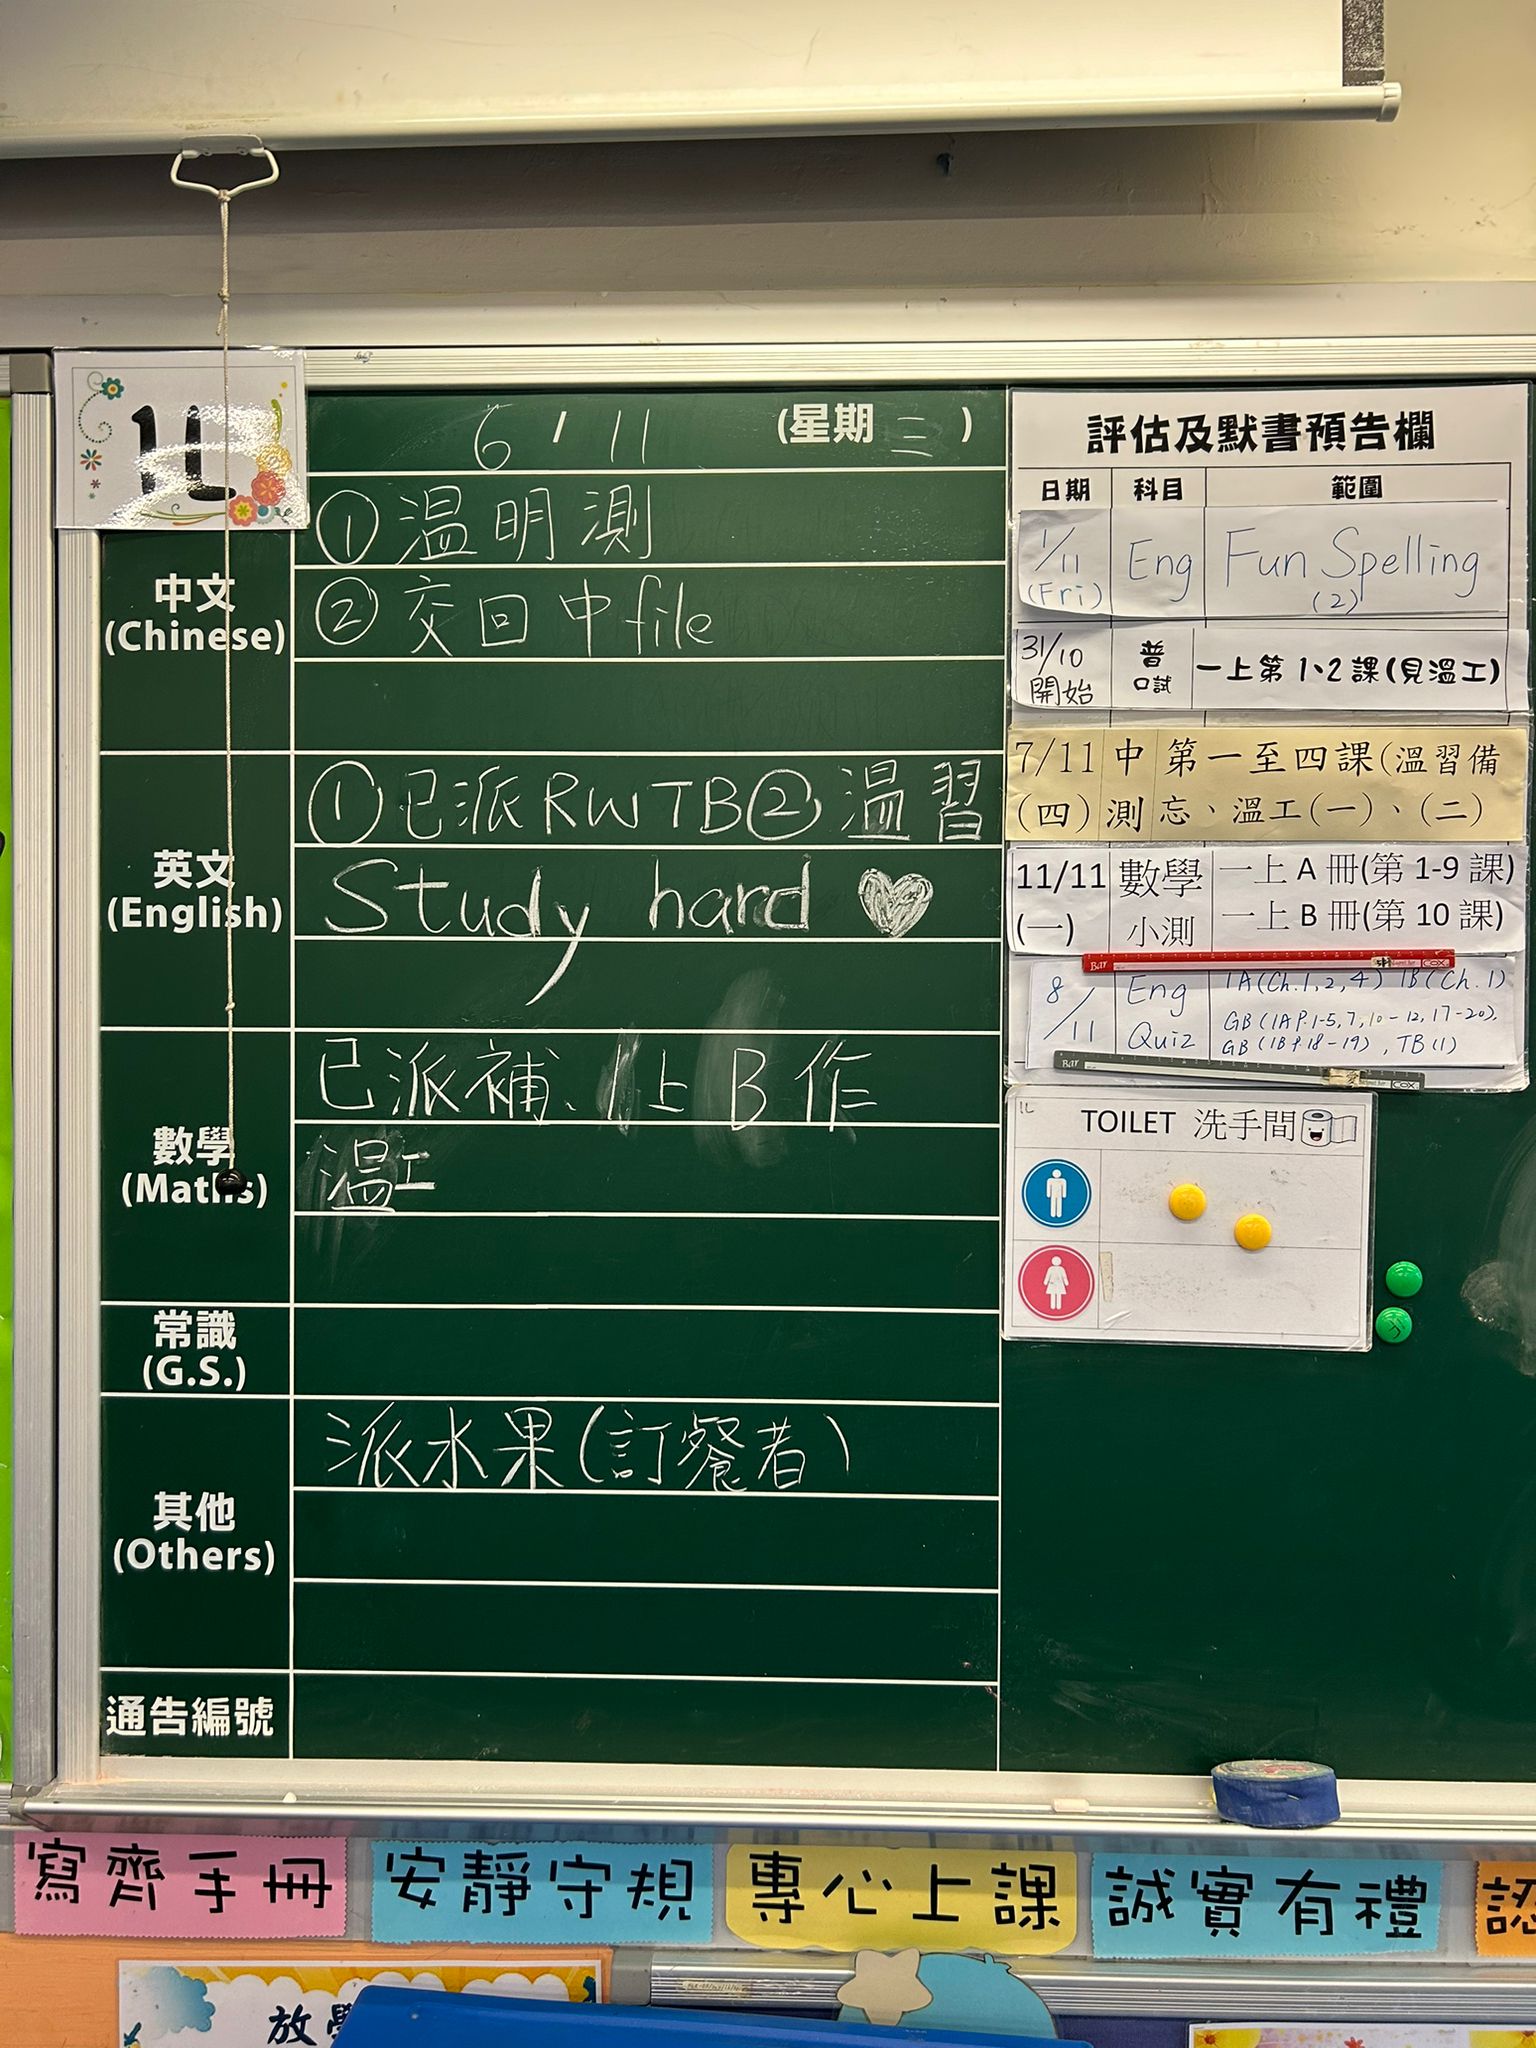 1L
6 / 11 (星期三)
中文
(Chinese)
① 温明測
② 交回中file
英文
(English)
① 已派RWTB ② 温習
Study hard
數學
(Maths)
已派補、1上B作
温工
常識
(G.S.)
其他
(Others)
派水果(訂餐者)
通告編號
評估及默書預告欄
日期 科目 範圍
1/11 (Fri) Eng Fun Spelling (2)
31/10 開始 普 口試 一上第1、2課(見溫工)
7/11 中 第一至四課(溫習備
(四) 測 忘、溫工(一)、(二)
11/11 數學 一上 A 冊(第 1-9 課)
(一) 小測 一上 B 冊(第 10 課)
8/11 Eng Quiz 1A(Ch.1,2,4) 1B(Ch.1)
GB (1A P.1-5, 7, 10-12, 17-20),
GB (1B P.18-19), TB(1)
1L
TOILET 洗手間
寫齊手冊 安靜守規 專心上課 誠實有禮
放